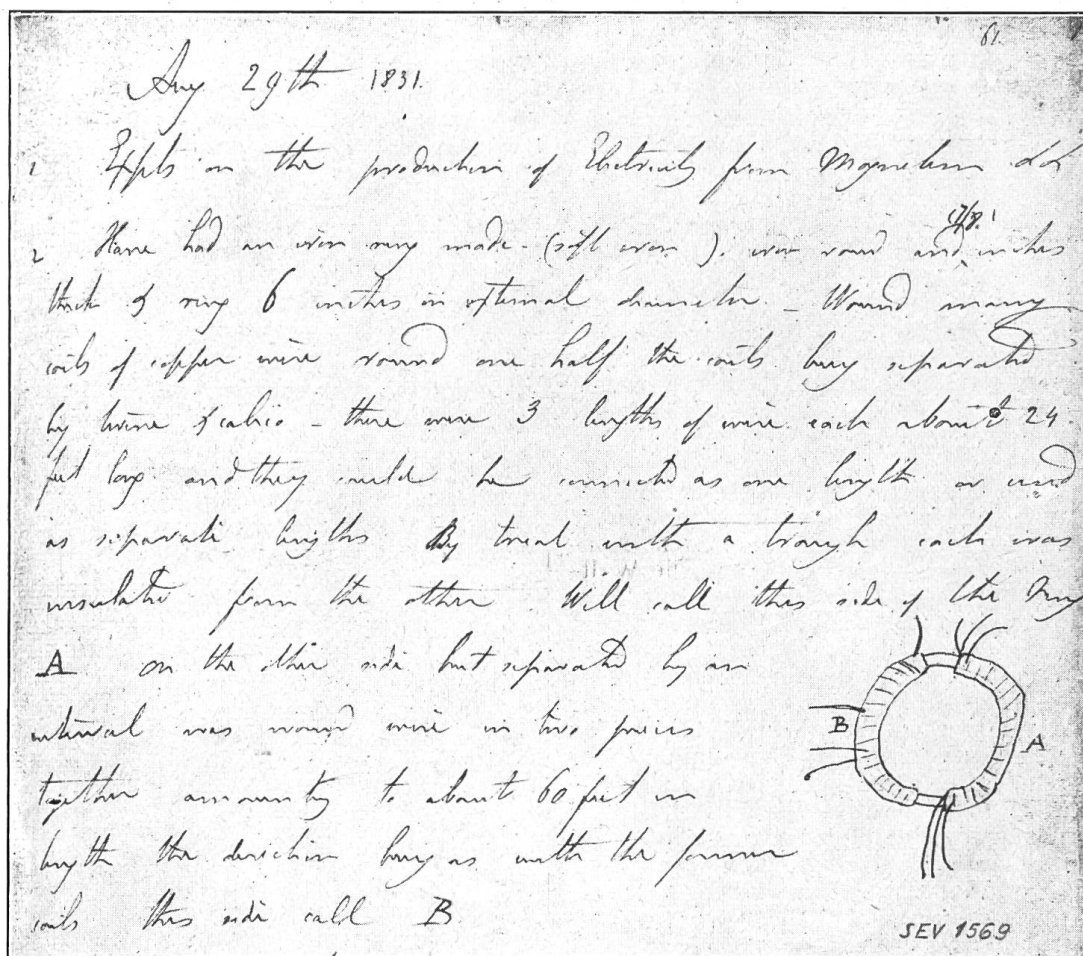 61.
Aug 29th 1831.
1 Expts on the production of Electricity from Magnetism &c &c
2 Have had an iron ring made (soft iron). iron round and 7/8 inches
thick & ring 6 inches in external diameter - Wound many
coils of copper wire round one half the coils being separated
by twine & calico - there were 3 lengths of wire each about 24
feet long and they could be connected as one length or used
as separate lengths By trial with a trough each was
insulated from the other. Will call this side of the ring
A on the other side but separated by an
interval was wound wire in two pieces
together amounting to about 60 feet in
length the direction being as with the former
coils this side call B
B
A
SEV 1569